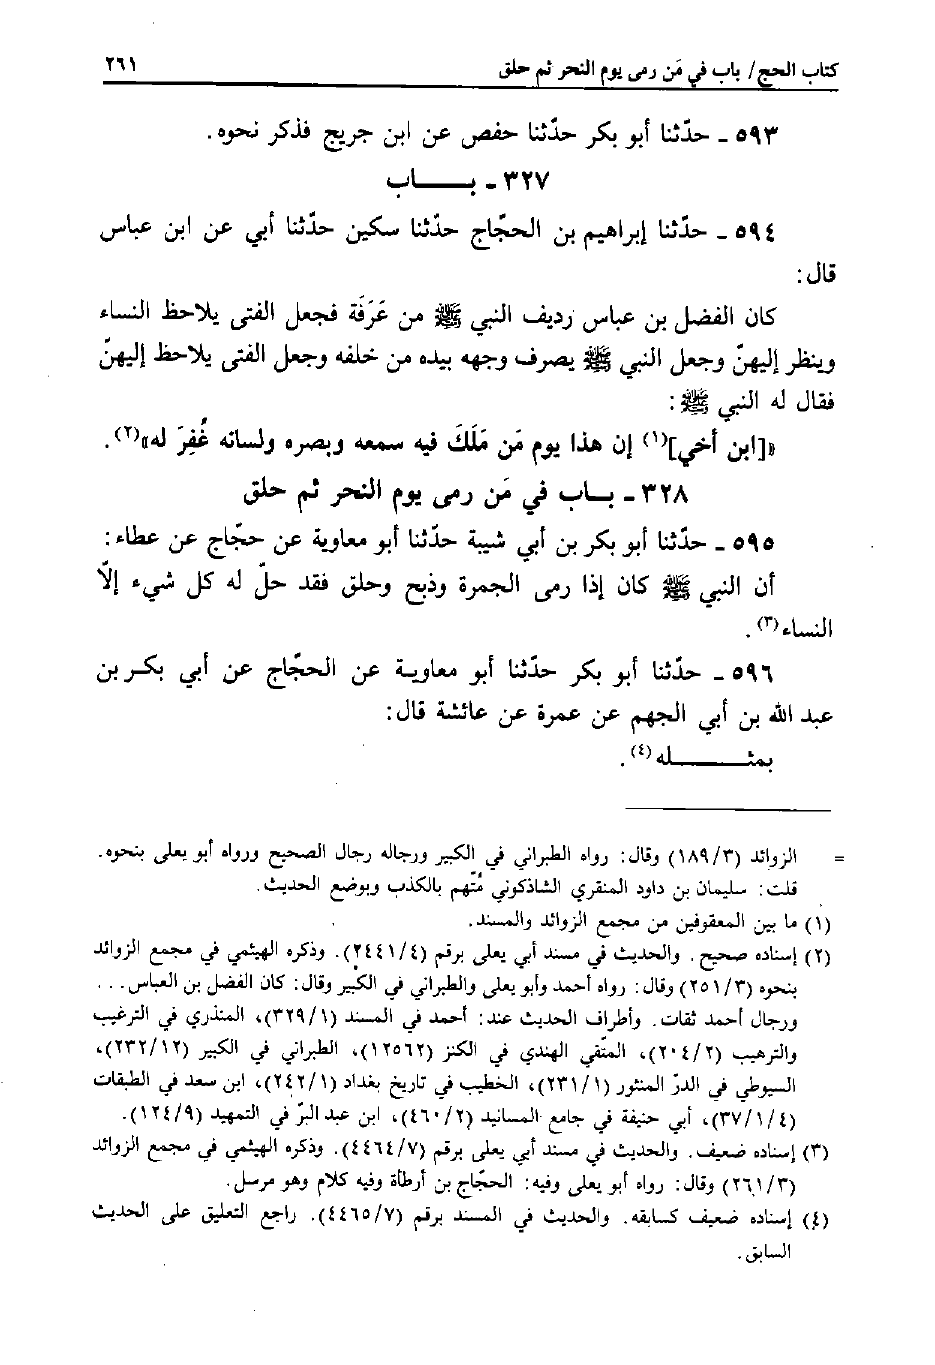 كتاب الحج/ باب في مَن رمى يوم النحر ثم حلق ٢٦١
٥٩٣ - حدّثنا أبو بكر حدّثنا حفص عن ابن جريج فذكر نحوه.
٣٢٧ - بـــــاب
٥٩٤ - حدّثنا إبراهيم بن الحجّاج حدّثنا سكين حدّثنا أبي عن ابن عباس
قال:
كان الفضل بن عباس رديف النبي ﷺ من عَرَفَة فجعل الفتى يلاحظ النساء
وينظر إليهنّ وجعل النبي ﷺ يصرف وجهه بيده من خلفه وجعل الفتى يلاحظ إليهنّ
فقال له النبي ﷺ:
«[ابن أخي](١) إن هذا يوم مَن مَلَكَ فيه سمعه وبصره ولسانه غُفِرَ له»(٢).
٣٢٨ - بـاب في مَن رمى يوم النحر ثم حلق
٥٩٥ - حدّثنا أبو بكر بن أبي شيبة حدّثنا أبو معاوية عن حجّاج عن عطاء:
أن النبي ﷺ كان إذا رمى الجمرة وذبح وحلق فقد حلّ له كل شيء إلّا
النساء(٣).
٥٩٦ - حدّثنا أبو بكر حدّثنا أبو معاوية عن الحجّاج عن أبي بكر بن
عبد الله بن أبي الجهم عن عمرة عن عائشة قال:
بمثـــــله(٤).
= الزوائد (١٨٩/٣) وقال: رواه الطبراني في الكبير ورجاله رجال الصحيح ورواه أبو يعلى بنحوه.
قلت: سليمان بن داود المنقري الشاذكوني مُتّهم بالكذب وبوضع الحديث.
(١) ما بين المعقوفين من مجمع الزوائد والمسند.
(٢) إسناده صحيح. والحديث في مسند أبي يعلى برقم (٢٤٤١/٤). وذكره الهيثمي في مجمع الزوائد
بنحوه (٢٥١/٣) وقال: رواه أحمد وأبو يعلى والطبراني في الكبير وقال: كان الفضل بن العباس...
ورجال أحمد ثقات. وأطراف الحديث عند: أحمد في المسند (٣٢٩/١)، المنذري في الترغيب
والترهيب (٢٠٤/٢)، المتّقي الهندي في الكنز (١٢٥٦٢)، الطبراني في الكبير (٢٣٢/١٢)،
السيوطي في الدرّ المنثور (٢٣١/١)، الخطيب في تاريخ بغداد (٢٤٢/١)، ابن سعد في الطبقات
(٣٧/١/٤)، أبي حنيفة في جامع المسانيد (٤٦٠/٢)، ابن عبد البرّ في التمهيد (١٢٤/٩).
(٣) إسناده ضعيف. والحديث في مسند أبي يعلى برقم (٤٤٦٤/٧). وذكره الهيثمي في مجمع الزوائد
(٢٦١/٣) وقال: رواه أبو يعلى وفيه: الحجّاج بن أرطأة وفيه كلام وهو مرسل.
(٤) إسناده ضعيف كسابقه. والحديث في المسند برقم (٤٤٦٥/٧). راجع التعليق على الحديث
السابق.